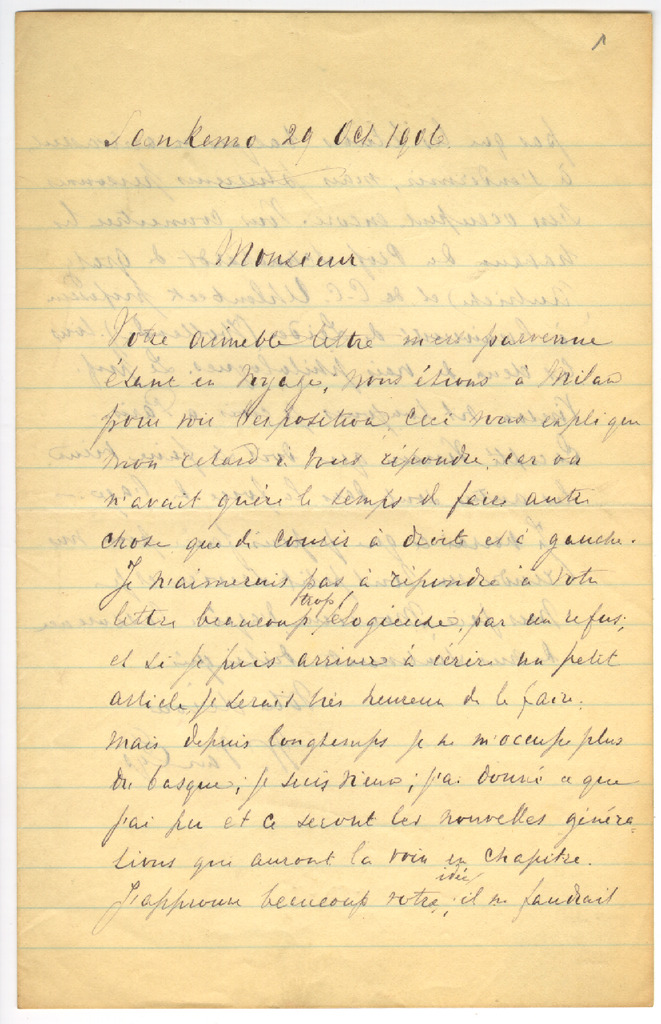 1
San Remo 29 Oct 1906.
Monsieur
Votre aimable lettre m'est parvenue
étant en voyage, nous étions à Milan
pour voir l'exposition, ceci vous explique
mon retard à vous répondre, car on
n'avait guère le temps d faire autre
chose que de courir à droite et à gauche.
Je n'aimerais pas à répondre à votre
lettre beaucoup trop élogieuse, par un refus,
et si je puis arriver à écrire un petit
article je serait très heureux de le faire.
Mais depuis longtemps je ne m'occupe plus
du basque; je suis vieux; j'ai donné ce que
j'ai pu et ce seront les nouvelles généra-
tions que auront la voix en chapitre.
J'approuve beaucoup votre idée; il ne faudrait